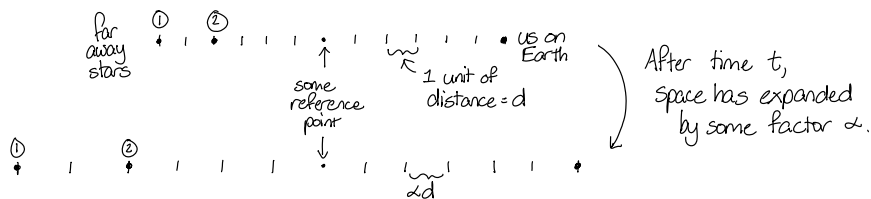 ① ②
far
away
stars
us on
Earth
some
reference
point
1 unit of
distance = d
After time t,
space has expanded
by some factor α.
① ②
αd